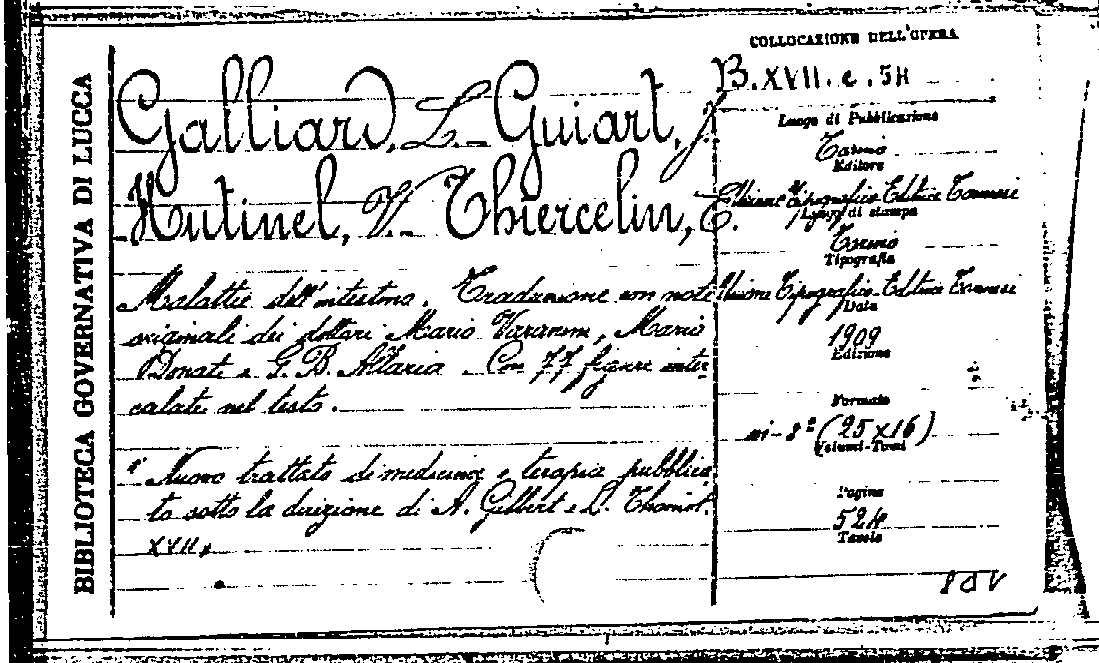 BIBLIOTECA GOVERNATIVA DI LUCCA
Galliard, L. - Guiart, J.
Hutinel, V. - Thiercelin, E.
Malattie dell'intestino. Traduzione con note
originali dei dottori Mario , Mario
Donati e G. B. Allaria - Con 77 figure inter-
calate nel testo.
Nuovo trattato di medicina e terapia pubblica
to sotto la direzione di A. Gilbert e L. Thoinot.
XVII,
COLLOCAZIONE DELL'OPERA
B. XVII. e. 54
Luogo di Pubblicazione
Torino
Editore
Unione Tipografico-Editrice Torinese
Luogo di stampa
Torino
Tipografia
Unione Tipografico-Editrice Torinese
Data
1909
Edizione
Formato
in-8º (25x16)
Volumi-Tomi
Pagine
524
Tavole